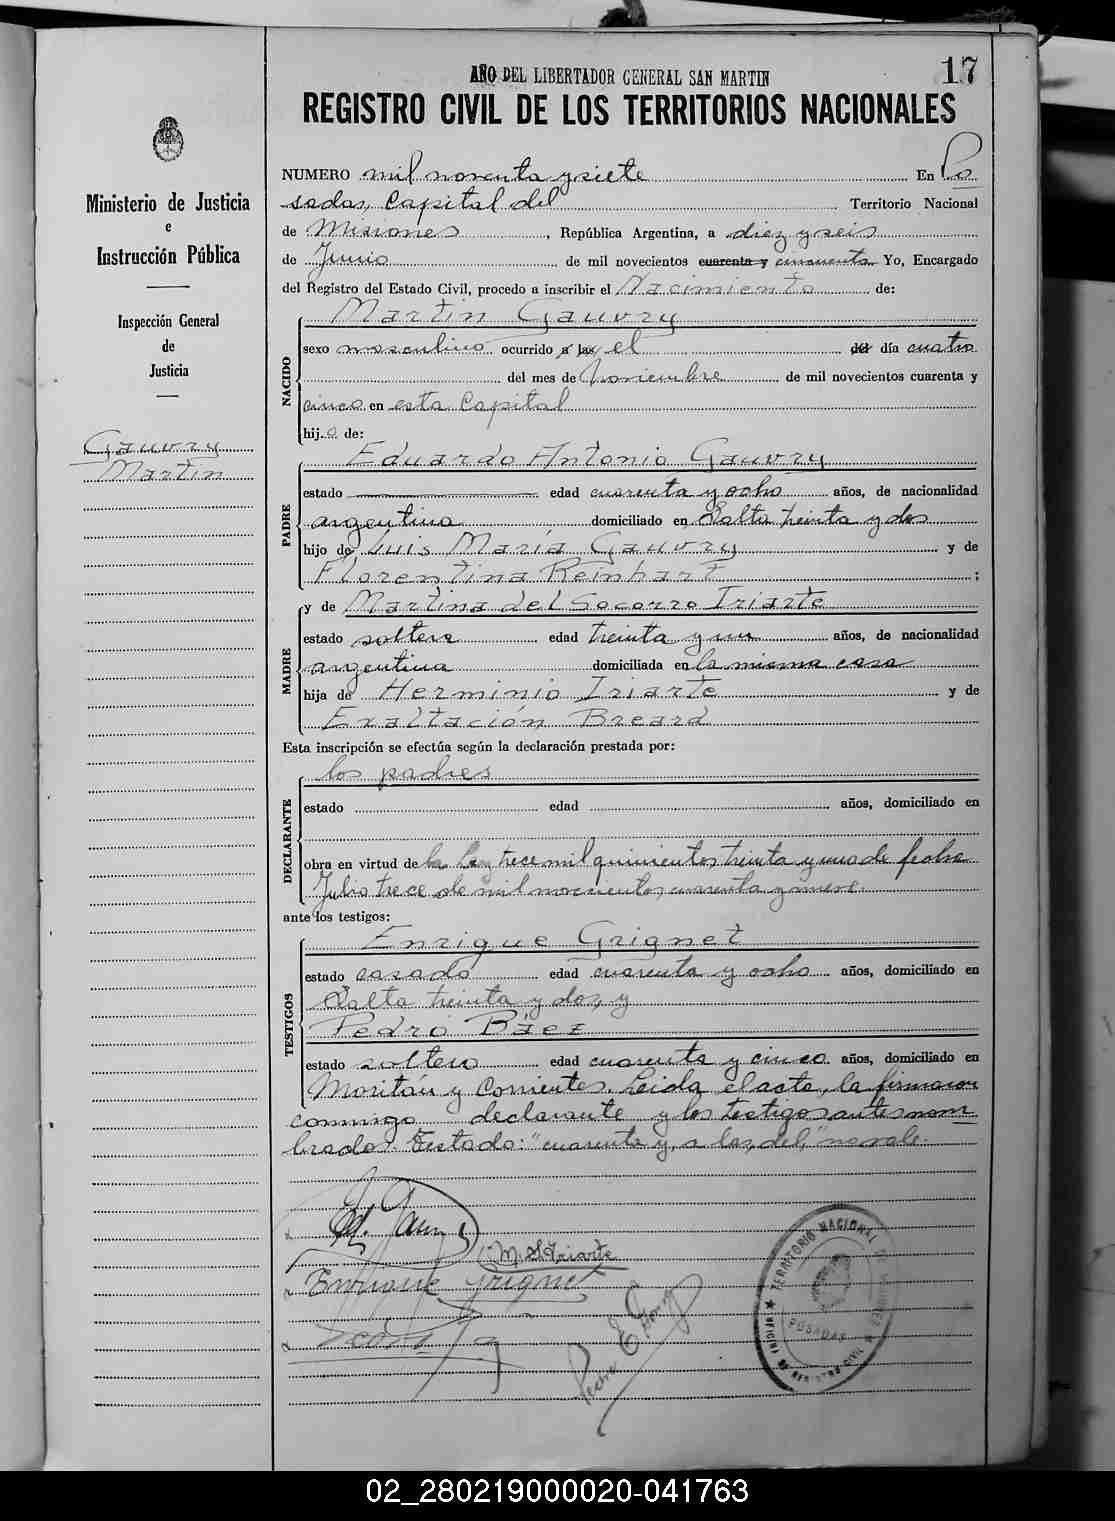 17
AÑO DEL LIBERTADOR GENERAL SAN MARTIN
REGISTRO CIVIL DE LOS TERRITORIOS NACIONALES
Ministerio de Justicia
e
Instrucción Pública
Inspección General
de
Justicia
Gauvry
Martin
NUMERO mil noventa y siete En Po
sadas, Capital del Territorio Nacional
de Misiones, República Argentina, a diez y seis
de Junio de mil novecientos cuarenta y cincuenta Yo, Encargado
del Registro del Estado Civil, procedo a inscribir el Nacimiento de:
NACIDO
Martin Gauvry
sexo masculino ocurrido a las el del día cuatro
del mes de Noviembre de mil novecientos cuarenta y
cinco en esta Capital
hijo de:
PADRE
Eduardo Antonio Gauvry
estado edad cuarenta y ocho años, de nacionalidad
argentina domiciliado en Salta treinta y dos
hijo de Luis María Gauvry y de
Florentina Reinhart ;
MADRE
y de Martina del Socorro Iriarte
estado soltera edad treinta y un años, de nacionalidad
argentina domiciliada en la misma casa
hija de Herminio Iriarte y de
Exaltación Breard
Esta inscripción se efectúa según la declaración prestada por:
DECLARANTE
los padres
estado edad años, domiciliado en
obra en virtud de la Ley trece mil quinientos treinta y uno de fecha
Julio trece de mil novecientos cuarenta y nueve.
ante los testigos:
TESTIGOS
Enrique Grignet
estado casado edad cuarenta y ocho años, domiciliado en
Salta treinta y dos, y
Pedro Báez
estado soltero edad cuarenta y cinco años, domiciliado en
Moritán y Corrientes. Leida el acta, la firmaron
conmigo declarante y los testigos antes nom
brados. Testado: "cuarenta y, a las, del," no vale.
M. S. Iriarte
Enrique Grignet
TERRITORIO NACIONAL DE MISIONES
POSADAS
OFICINA DE REGISTRO CIVIL
02_280219000020-041763